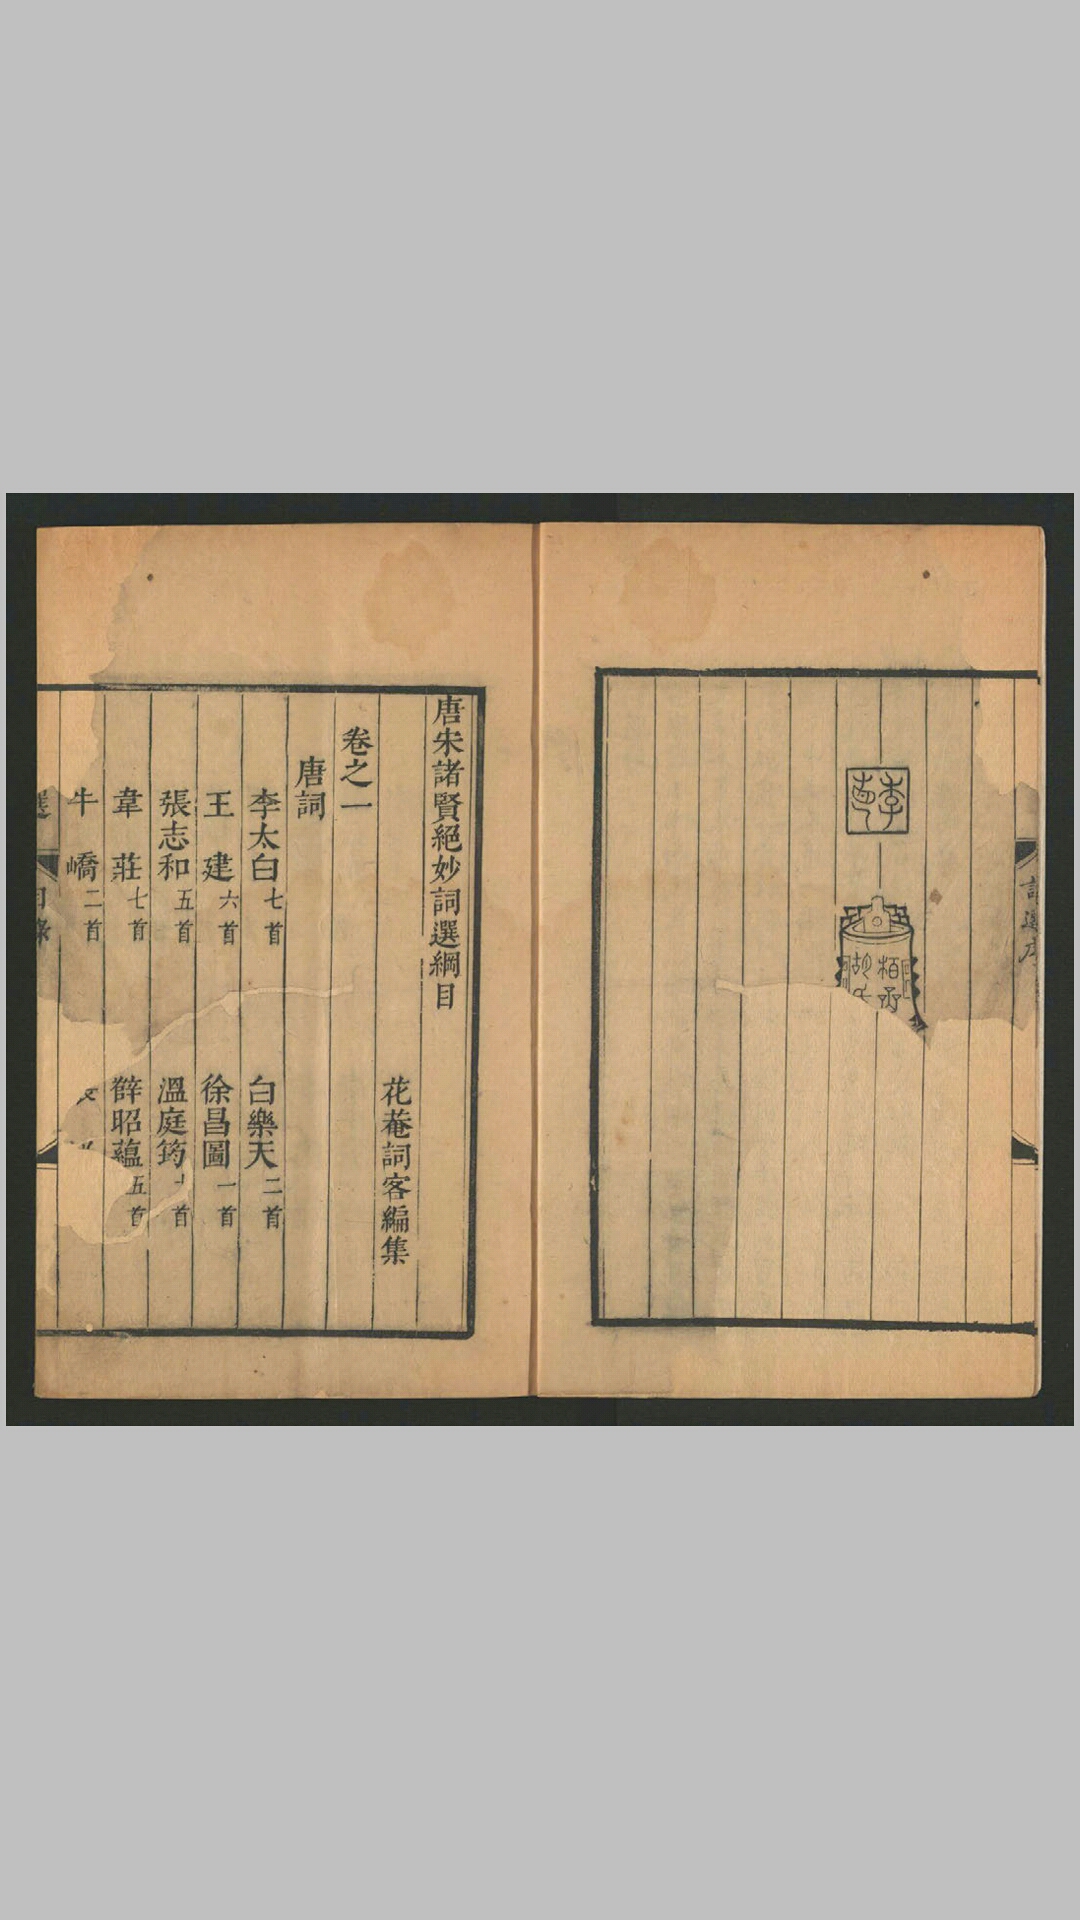 唐宋諸賢絕妙詞選綱目
花菴詞客編集
卷之一
唐詞
李太白七首
白樂天二首
王建六首
徐昌圖一首
張志和五首
溫庭筠
韋莊七首
薛昭蘊五首
牛嶠二首
目錄